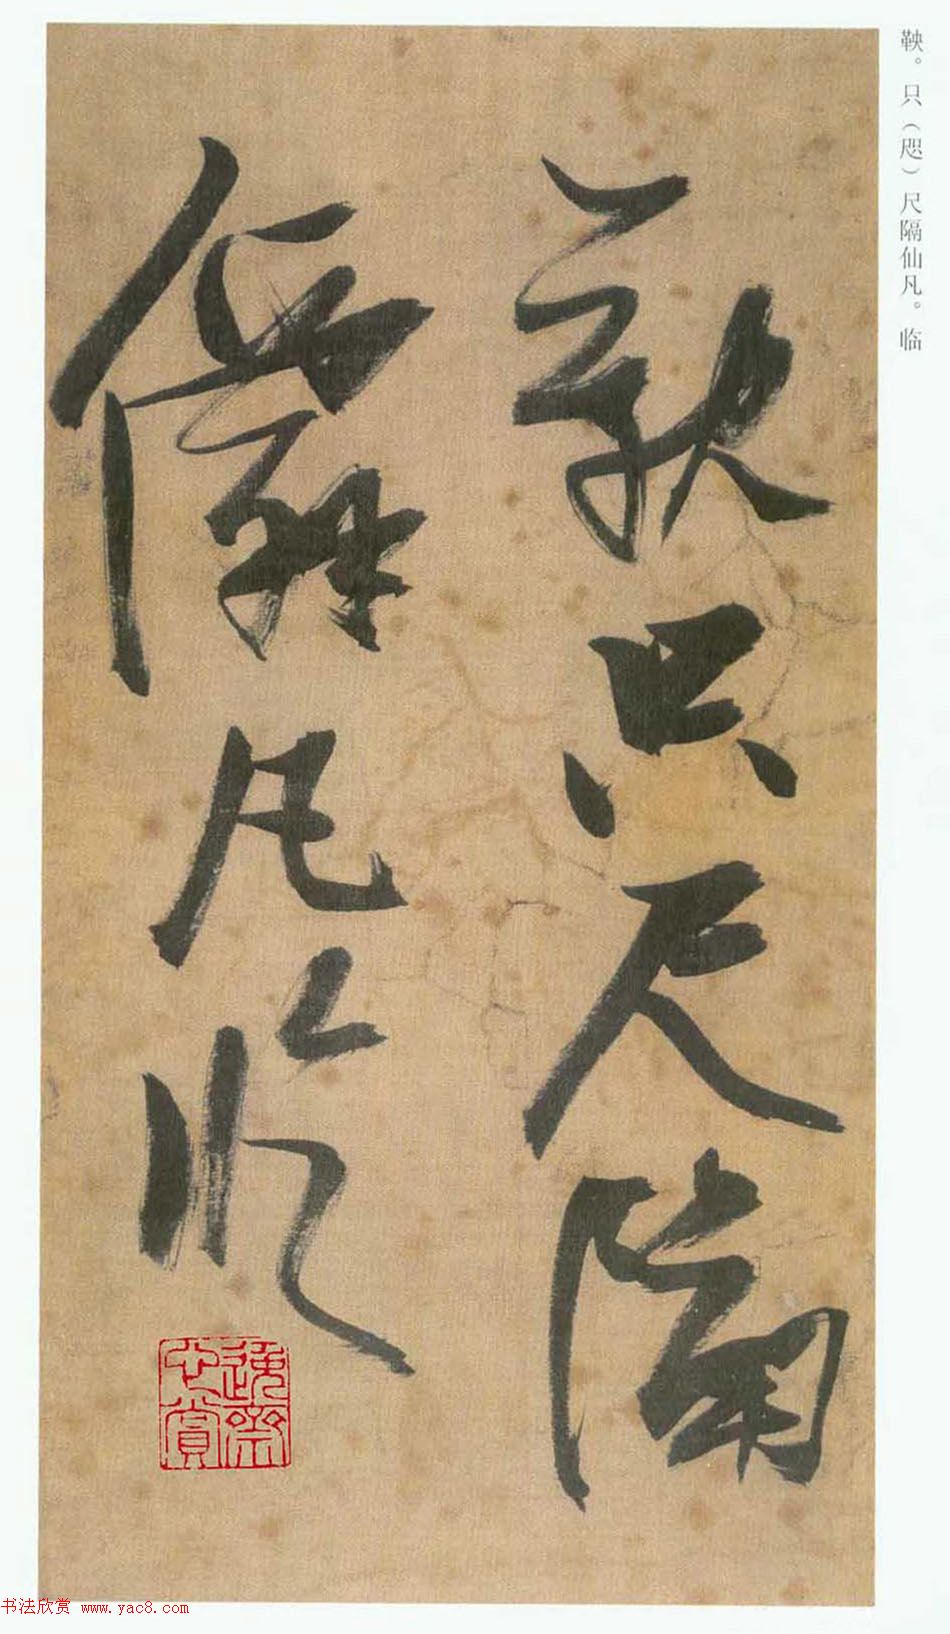 鞅。只（咫）尺隔仙凡。临
鞅只尺隔
僊凡临
书法欣赏 www.yac8.com